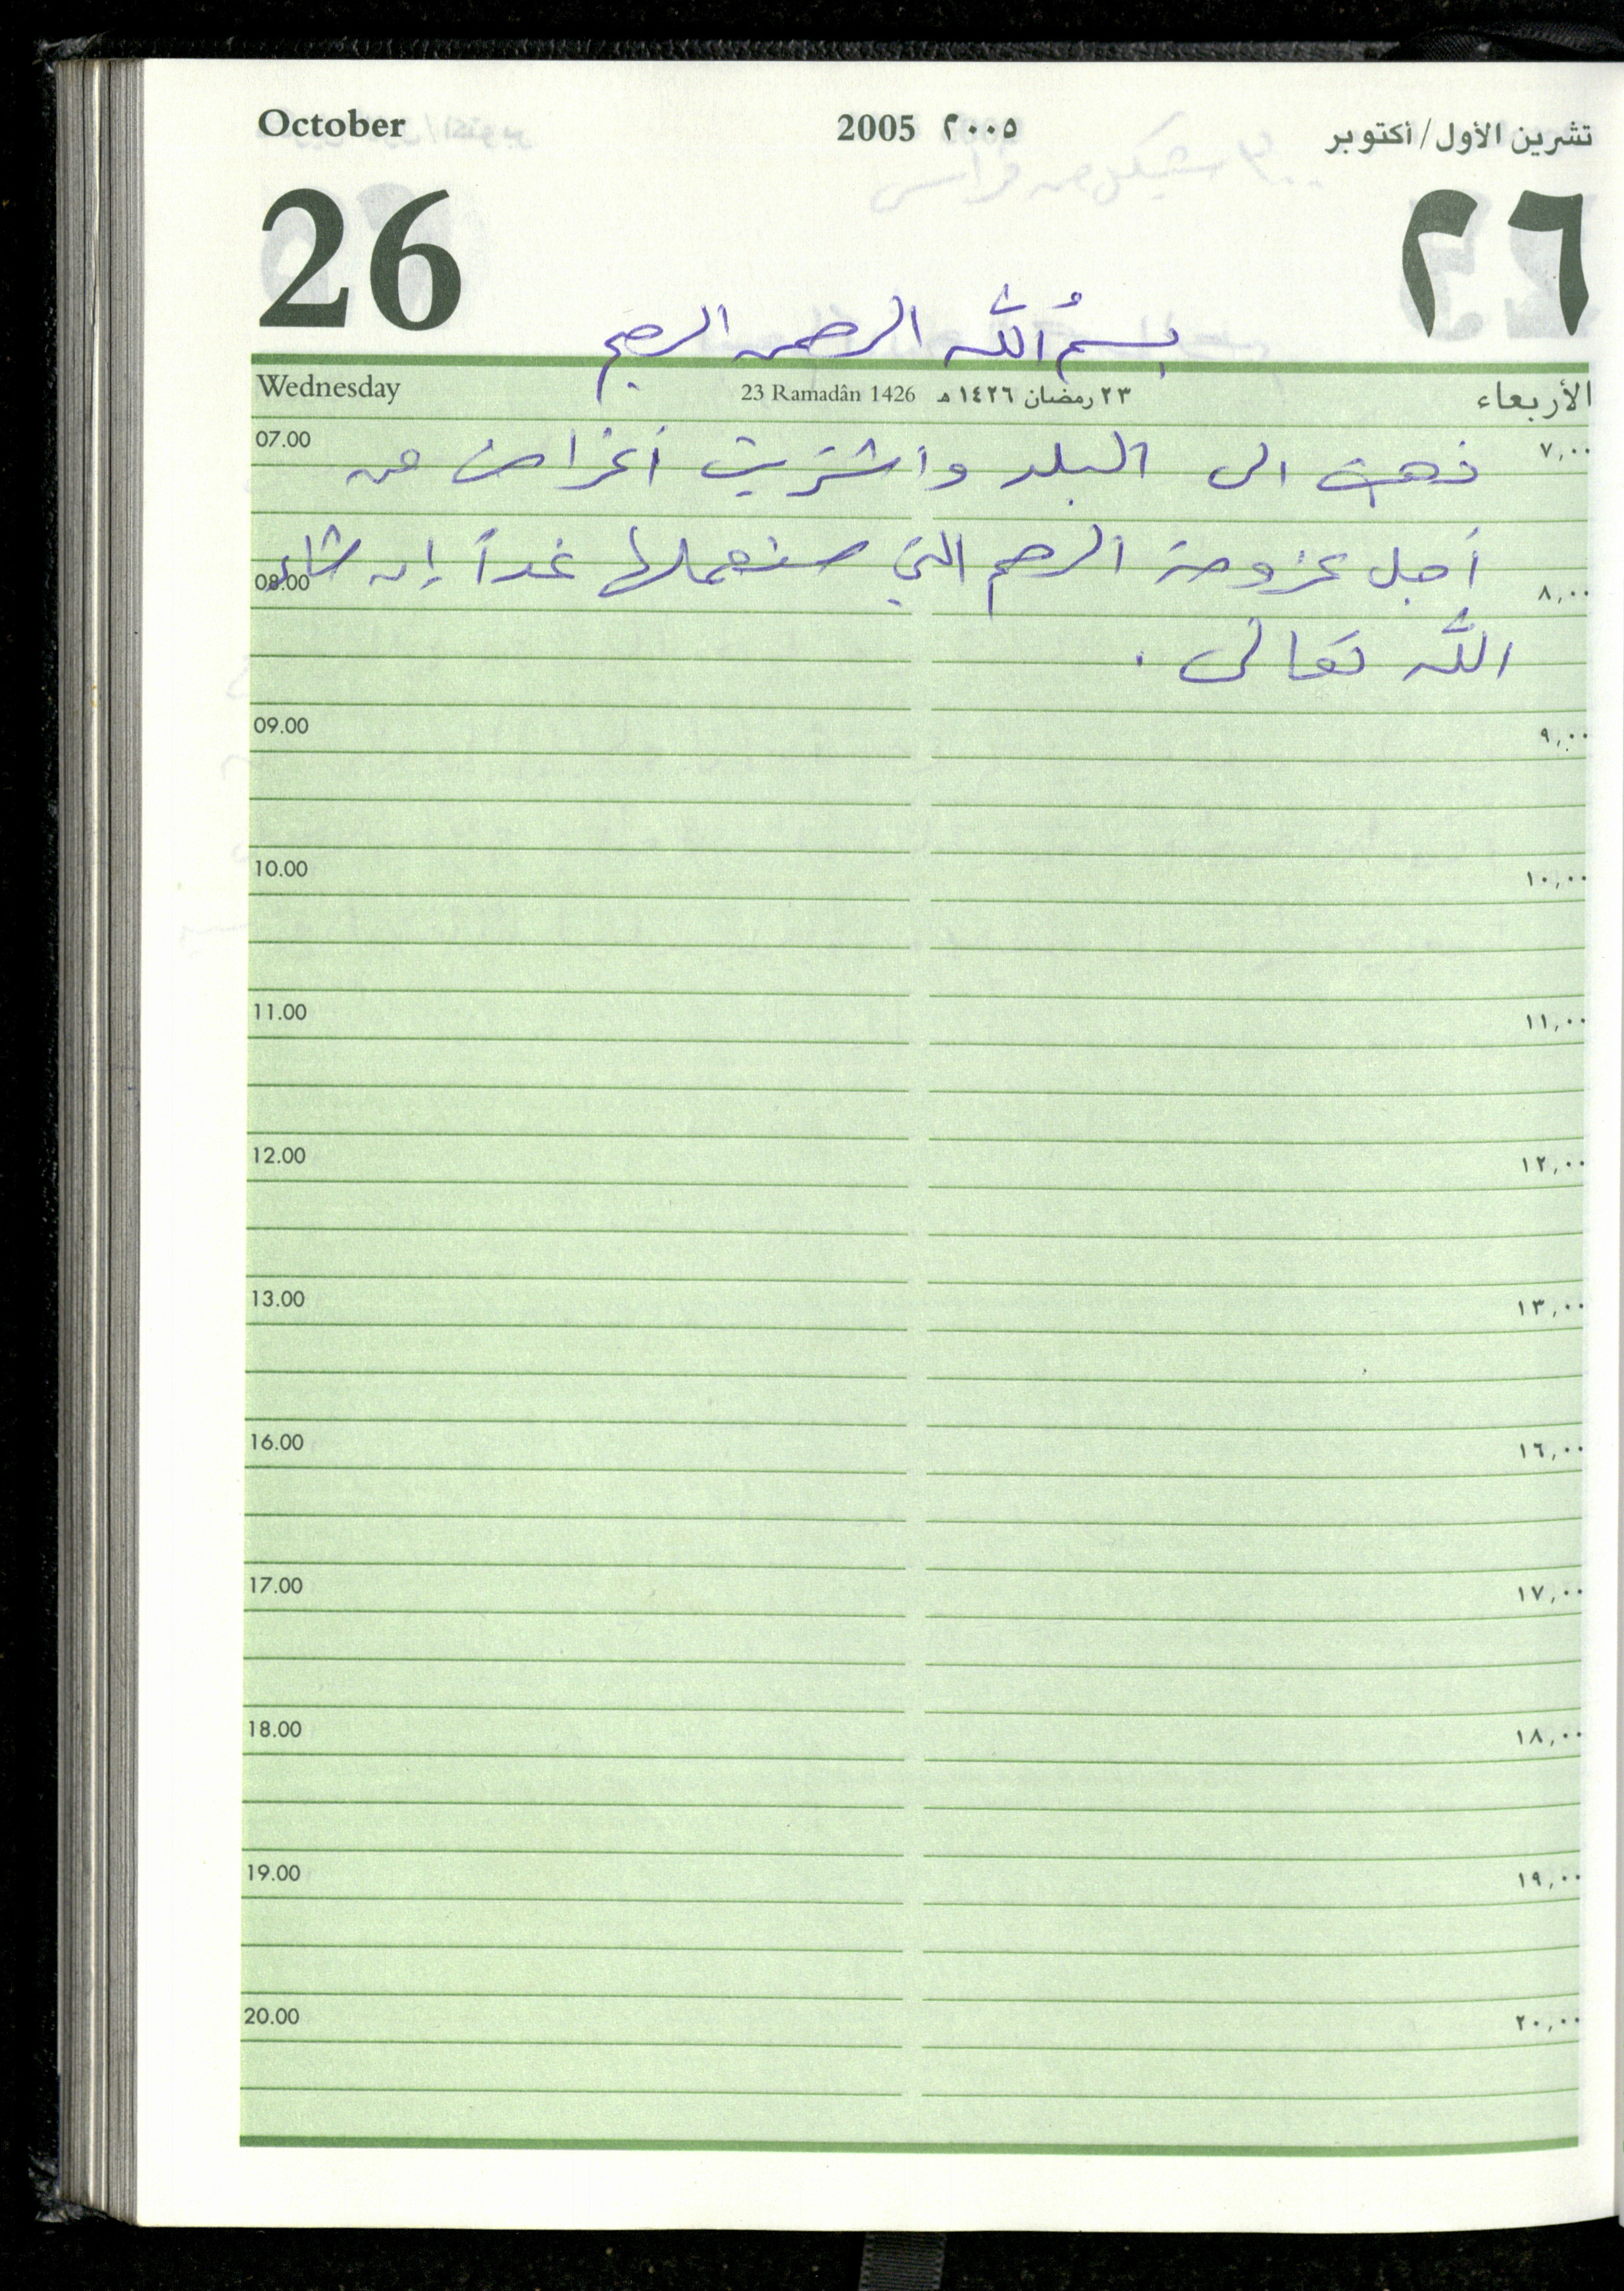 October 2005 ٢٠٠٥ تشرين الأول/أكتوبر
26 ٢٦
بسم الله الرحمن الرحيم
Wednesday 23 Ramadân 1426 ٢٣ رمضان ١٤٢٦ هـ الأربعاء
07.00 ٧,٠٠
ذهبت الى البلد وأشتريت أغراض من
أجل عزومة الرحم التي سنعملها غداً إن شاء
08.00 ٨,٠٠
الله تعالى .
09.00 ٩,٠٠
10.00 ١٠,٠٠
11.00 ١١,٠٠
12.00 ١٢,٠٠
13.00 ١٣,٠٠
16.00 ١٦,٠٠
17.00 ١٧,٠٠
18.00 ١٨,٠٠
19.00 ١٩,٠٠
20.00 ٢٠,٠٠